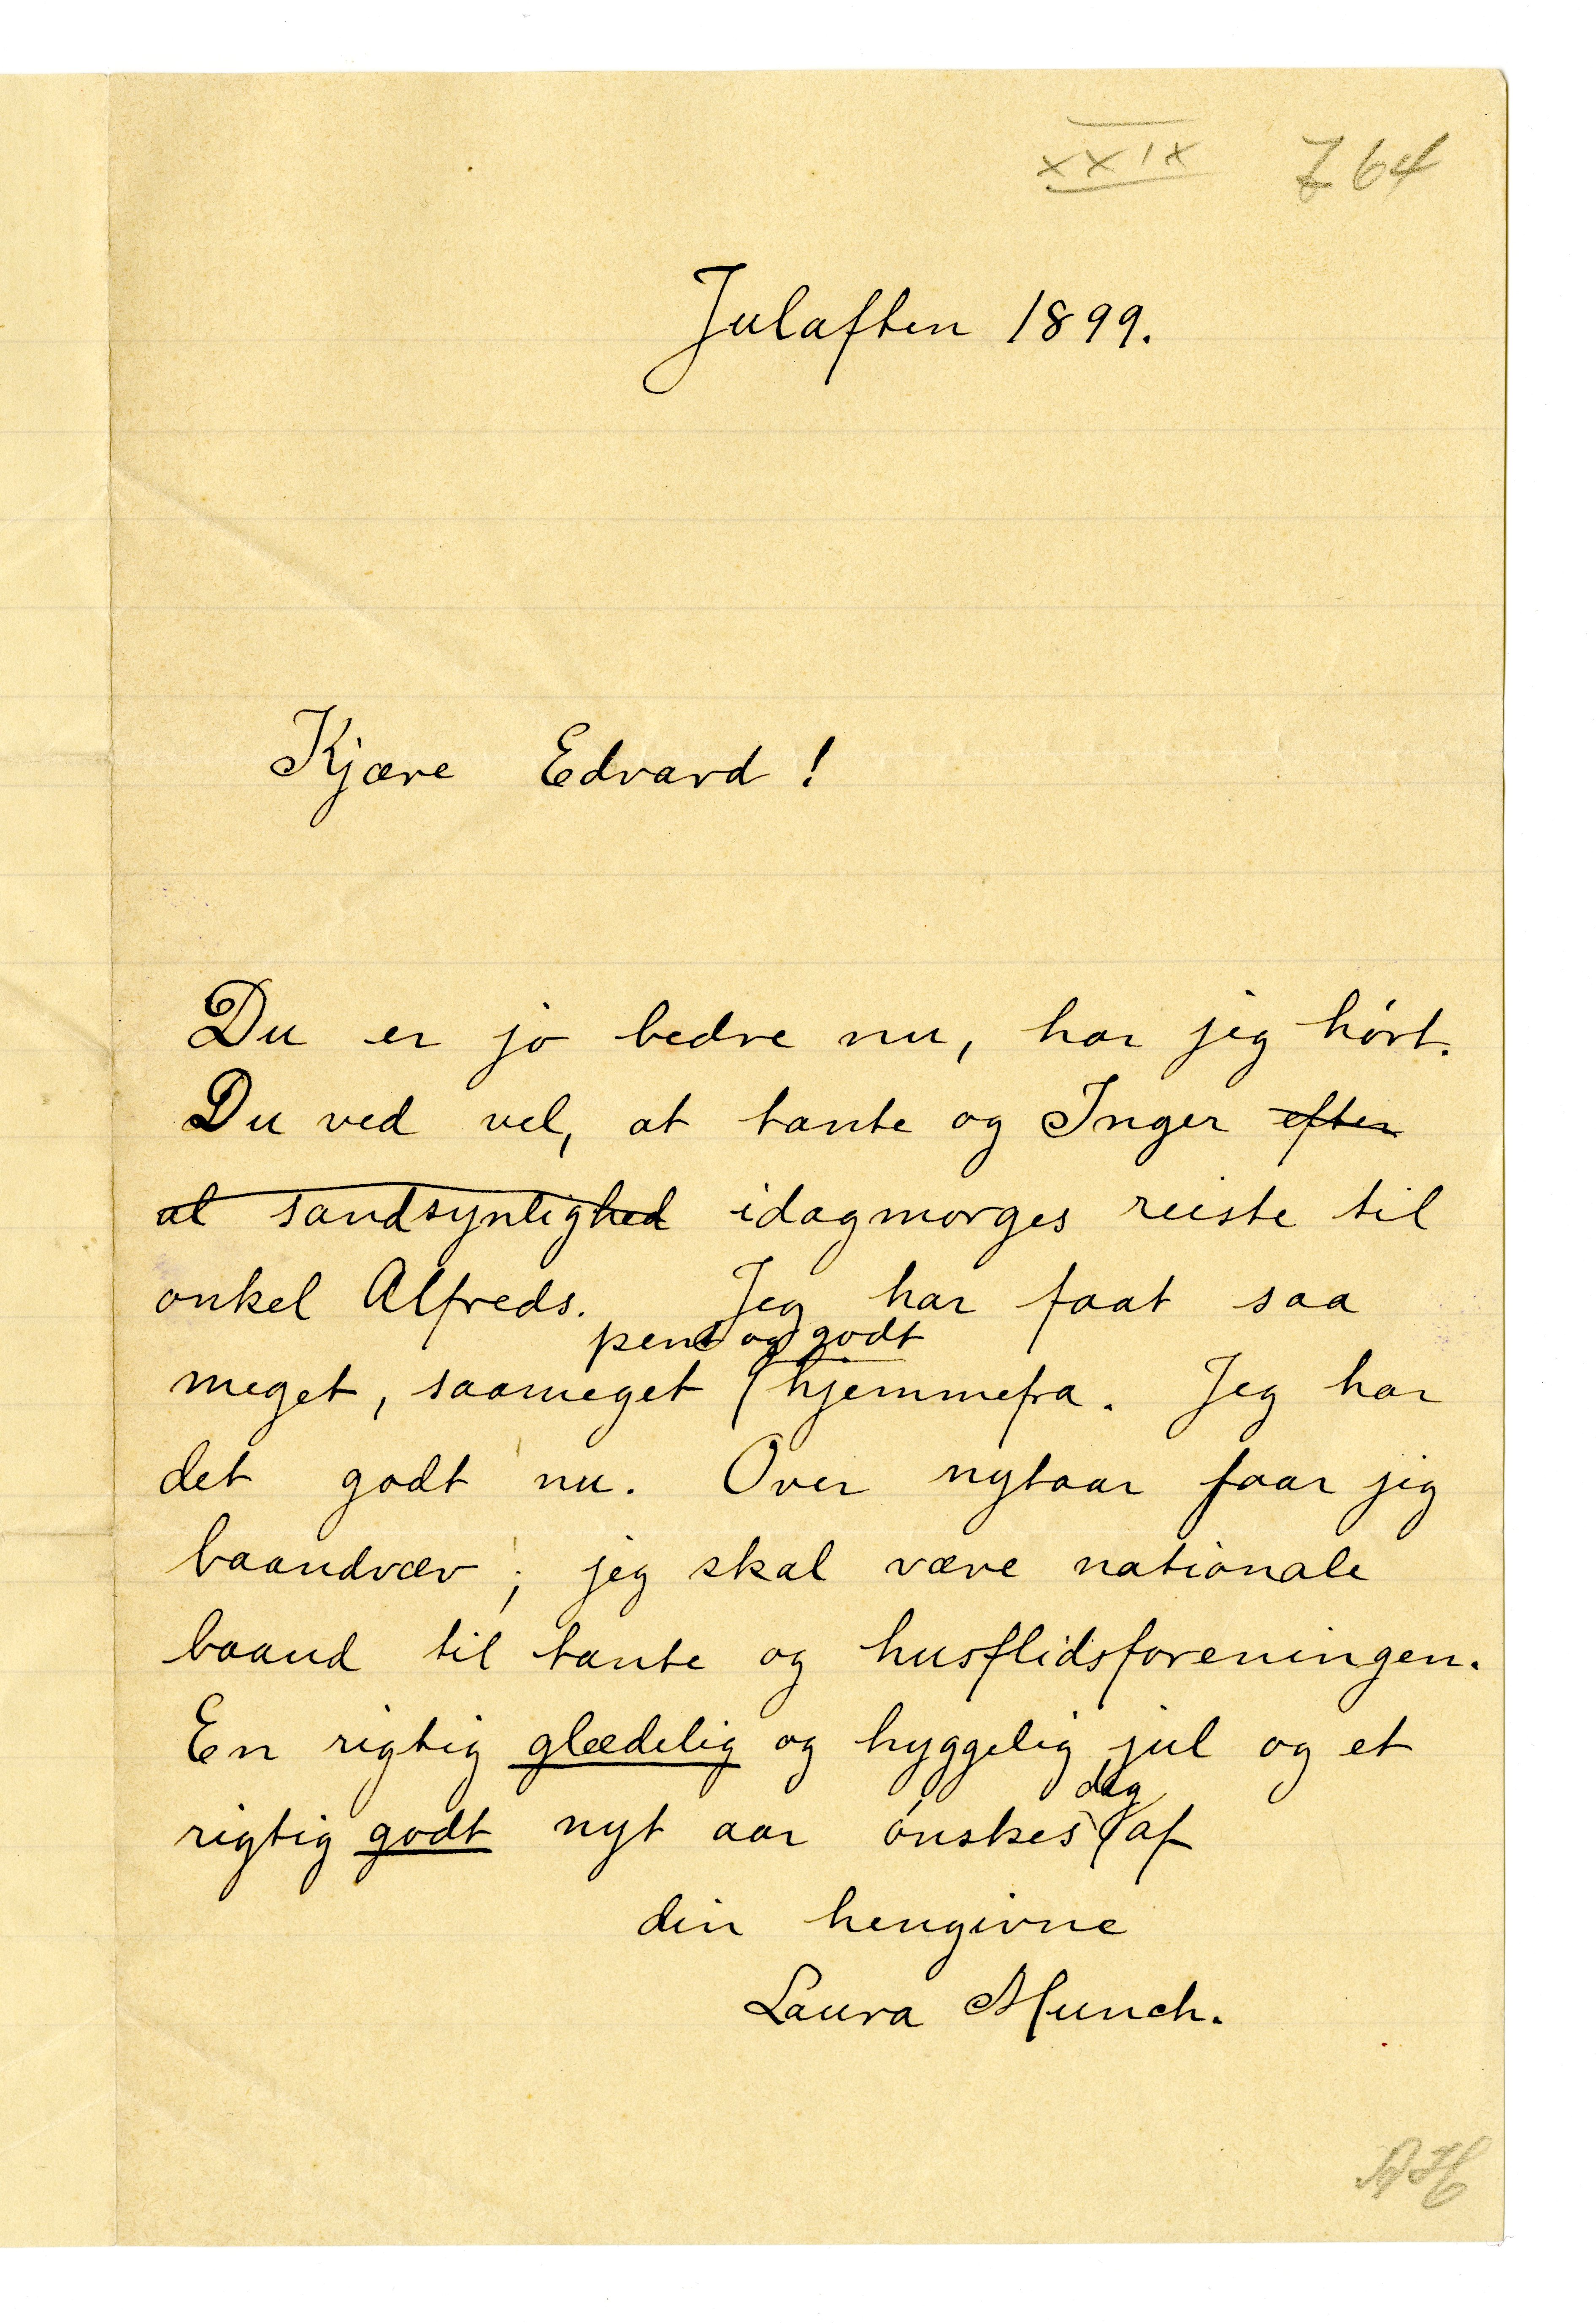 XXIX 764
Julaften 1899.
Kjære Edvard!
Du er jo bedre nu, har jeg hørt.
Du ved vel, at tante og Inger efter
al sandsynlighed idagmorges reiste til
onkel Alfreds. Jeg har faat saa
pent og godt
meget, saameget hjemmefra. Jeg har
det godt nu. Over nytaar faar jeg
baandvæv; jeg skal væve nationale
baand til tante og husflidsforeningen.
En rigtig glædelig og hyggelig jul og et
dig
rigtig godt nyt aar ønskes af
din hengivne
Laura Munch.